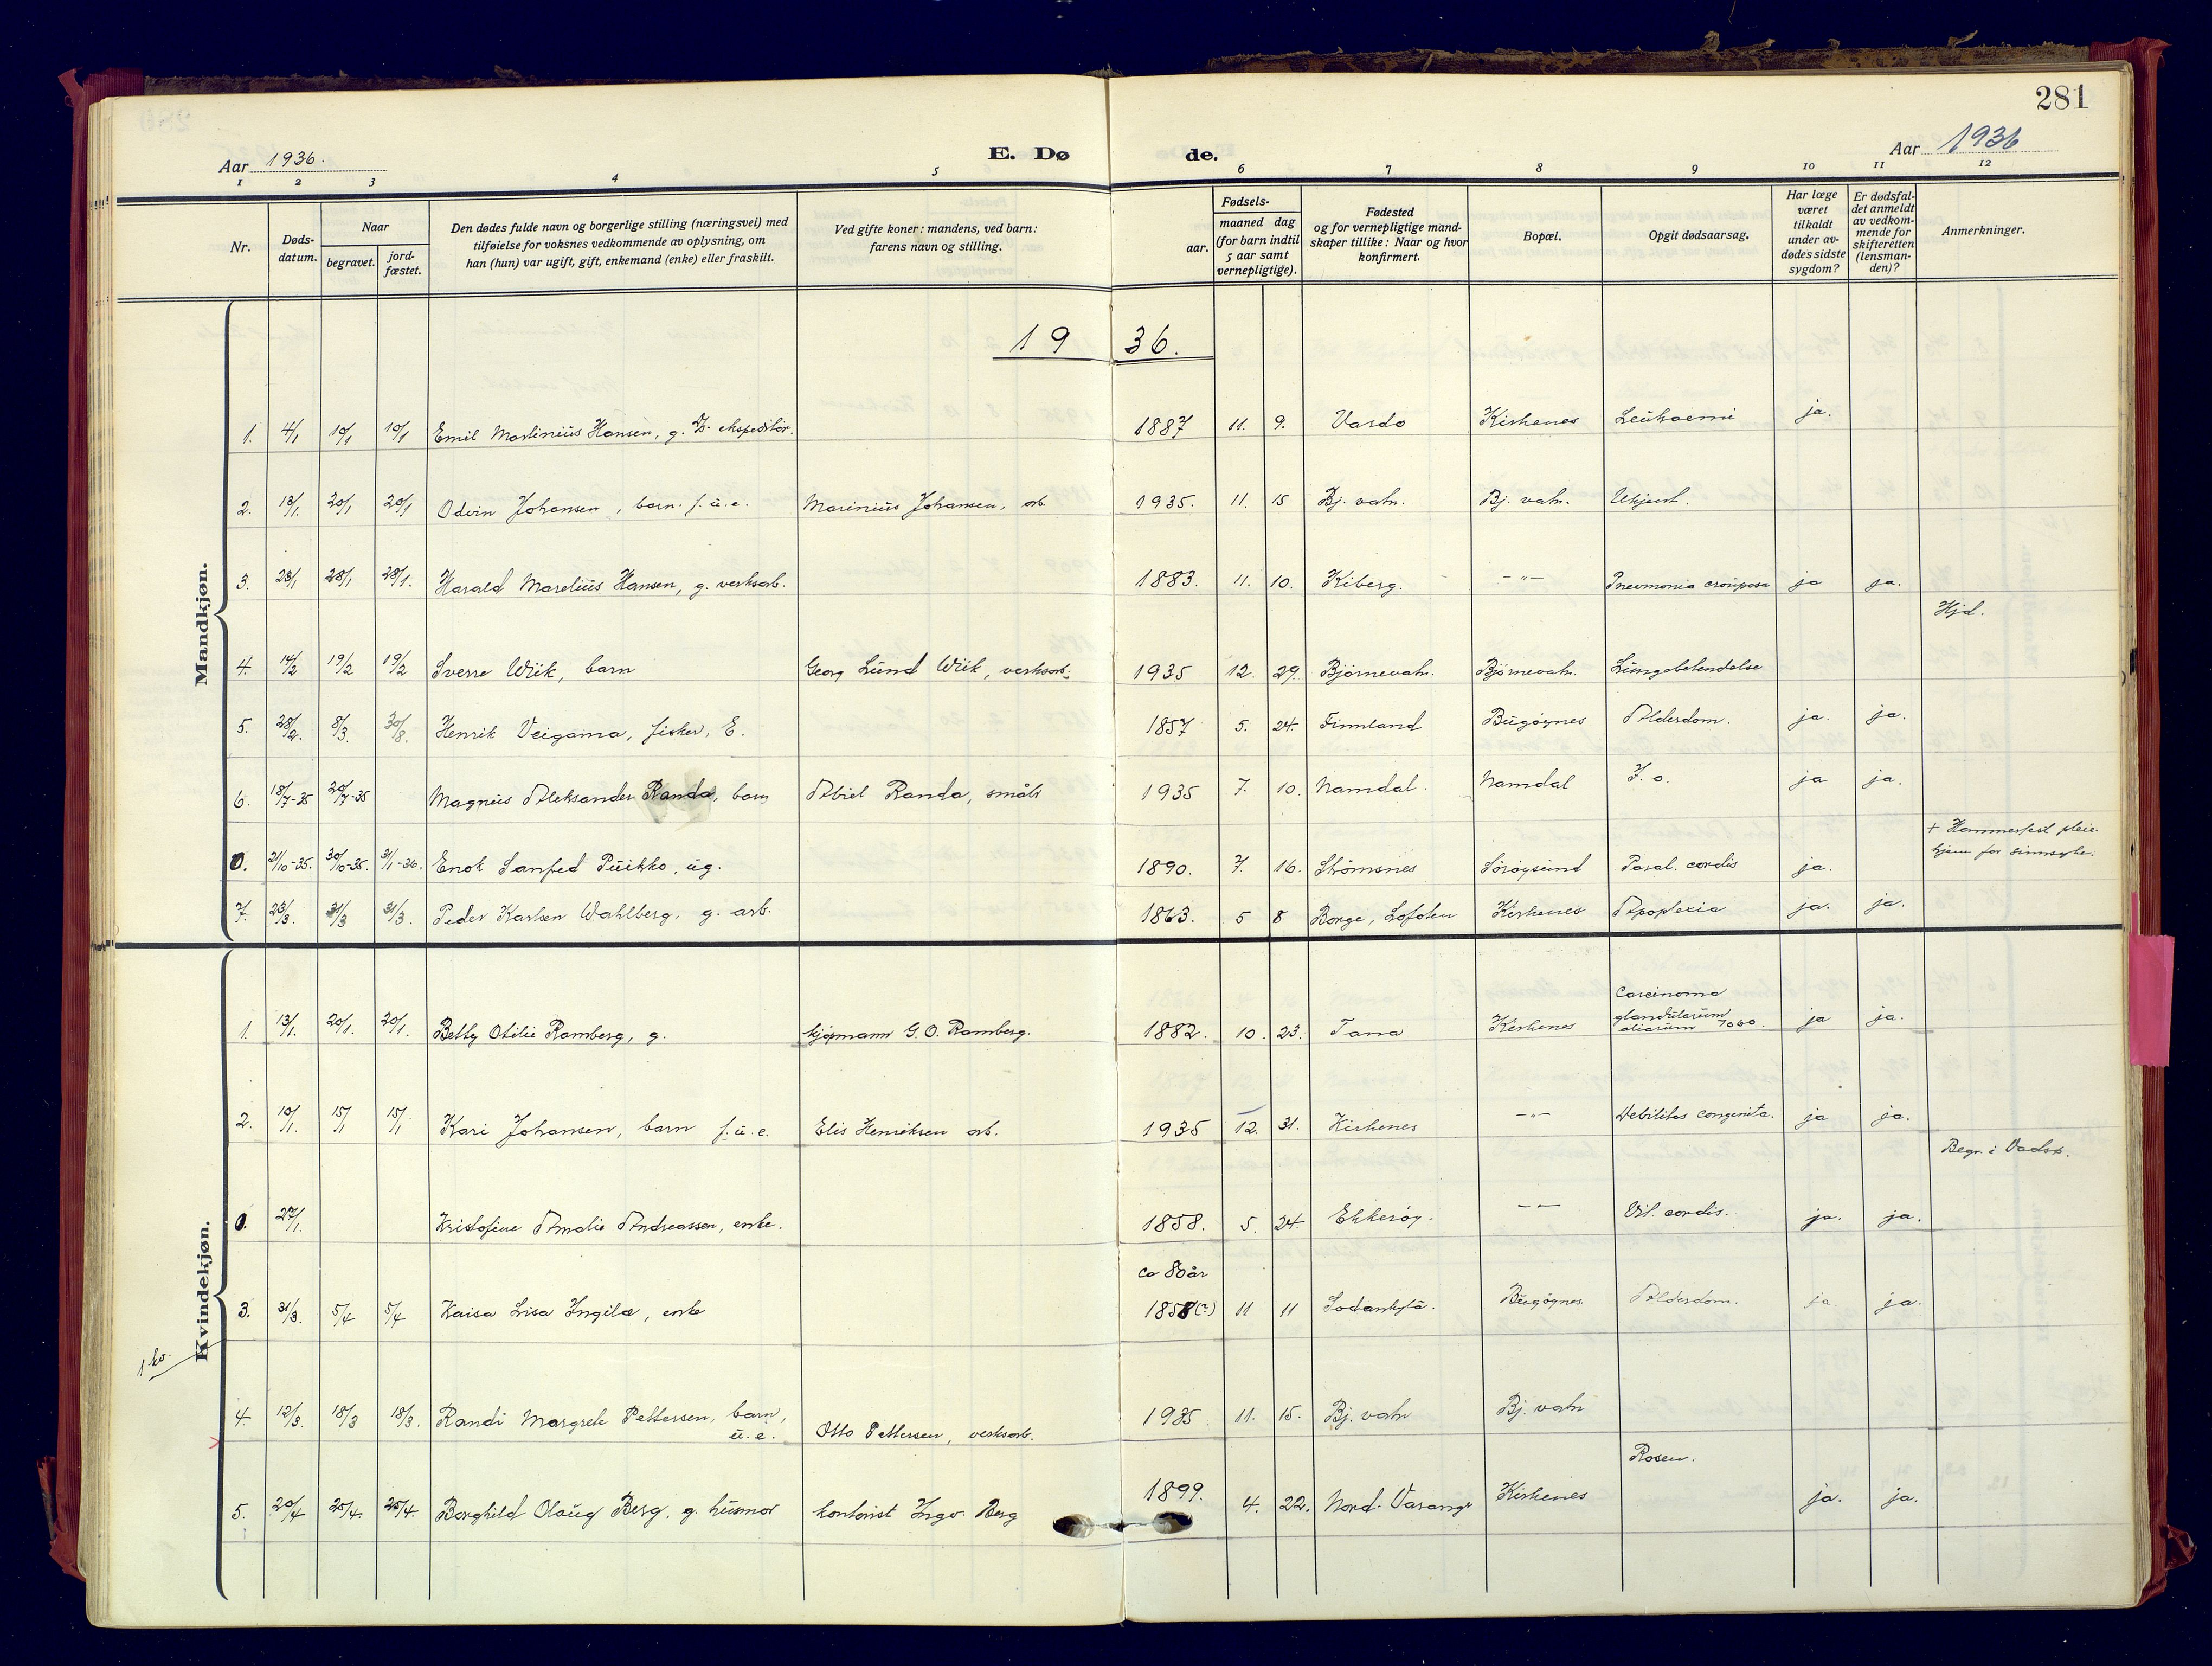 281
Aar 1936. E. Dø de. Aar 1936
1 2 3 4 5 6 7 8 9 10 11 12
Nr. Døds-datum. Naar begravet. jord-fæstet. Den dødes fulde navn og borgerlige stilling (næringsvei) med tilføielse for voksnes vedkommende av oplysning, om han (hun) var ugift, gift, enkemand (enke) eller fraskilt. Ved gifte koner: mandens, ved barn: farens navn og stilling. Fødsels- aar. maaned dag (for barn indtil 5 aar samt vernepligtige). Fødested og for vernepligtige mand-skaper tillike: Naar og hvor konfirmert. Bopæl. Opgit dødsaarsag. Har læge været tilkaldt under av-dødes sidste sygdom? Er dødsfal-det anmeldt av vedkom-mende for skifteretten (lensman-den)? Anmerkninger.
19 36.
Mandkjøn.
1. 4/1 10/1 10/1 Emil Martinius Hansen, g. ekspeditør. 1887 11. 9. Vardø Kirkenes Leukaemi ja.
2. 13/1. 20/1 20/1 Odvin Johansen, barn. f.u.e. Marinius Johansen, arb. 1935. 11. 15 Bj. vatn. Bj. vatn. Ukjent.
3. 23/1 28/1 28/1. Harald Marelius Hansen, g. verksarb. 1883. 11. 10. Kiberg. -"- Pneumonia crouposa ja ja.
Hjd.
4. 14/2 19/2 19/2 Sverre Wiik, barn Georg Lund Wiik, verksarb. 1935 12. 29. Bjørnevatn. Bjørnevatn. Lungebetendelse
5. 28/2. 8/3. 30/8. Henrik Veigama, fisker, E. 1857 5. 24. Finnland Bugøynes Alderdom. ja. ja.
6. 18/7-35 20/7-35 Magnus Aleksander Randa, barn Abiel Randa, småbr 1935 7. 10. Namdal. Namdal ja ja.
0. 21/10-35. 30/10-35. 31/1-36. Enok Sanfred Puikko, ug. 1890. 7. 16. Strømsnes Sørøysund Paral. cordis ja. + Hammerfest pleie-
hjem for sinnsyke.
7. 23/3. 31/3 31/3. Peder Karken Wahlberg, g. arb. 1863. 5 8 Borge, Lofoten Kirkenes Apoplexia ja. ja.
Kvindekjøn.
1. 13/1. 20/1. 20/1. Betty Otilie Ramberg, g. kjøpmann G. O. Ramberg. 1882. 10. 23. Tana Kirkenes Carcinoma
glandularum
aliarum ja ja.
2. 10/1. 15/1 15/1 Kari Johansen, barn f.u.e. Elis Henriksen arb. 1935 12. 31. Kirkenes -"- Debilitas congenita. ja ja.
Begr. i Vadsø.
0. 27/1. Kristofine Amalie Andreassen, enke. 1858. 5. 24. Ekkerøy. -"- Vit. cordis. ja. ja.
ca 80 år
3. 31/3. 5/4 5/4 Kaisa Lisa Ingilæ, enke 1858(?) 11 11 Sodankylä. Bugøynes Alderdom. ja ja.
1 kv.
4. 12/3. 18/3 18/3. Randi Margrete Pettersen, barn,
u.e. Otto Pettersen, verksarb. 1935 11. 15. Bj. vatn Bj. vatn
Rosen.
5. 20/4 25/4. 25/4. Borghild Olaug Berg, g. husmor kontorist Ingv. Berg 1899. 4. 22. Nord-Varanger Kirkenes ja. ja.